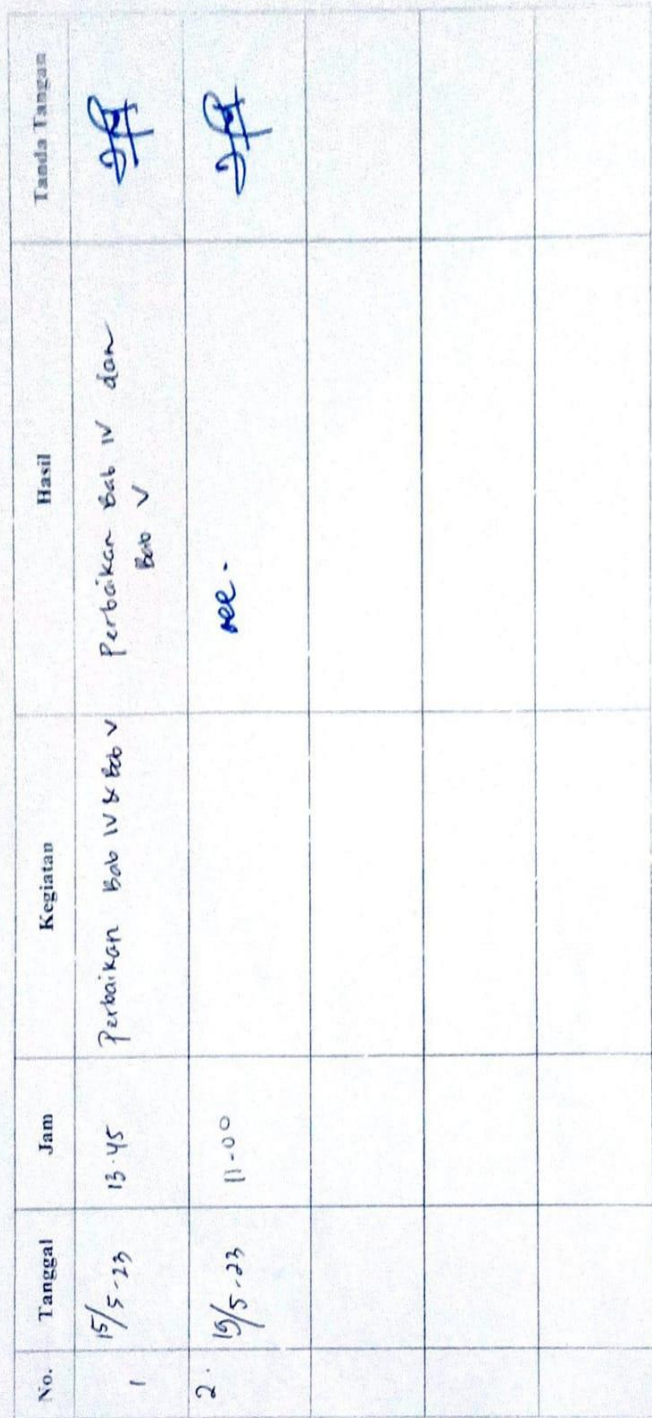 No. Tanggal Jam Kegiatan Hasil Tanda Tangan
1 15/5-23 13.45 Perbaikan Bab IV & Bab V Perbaikan Bab IV dan
Bab V
2. 19/5-23 11-00